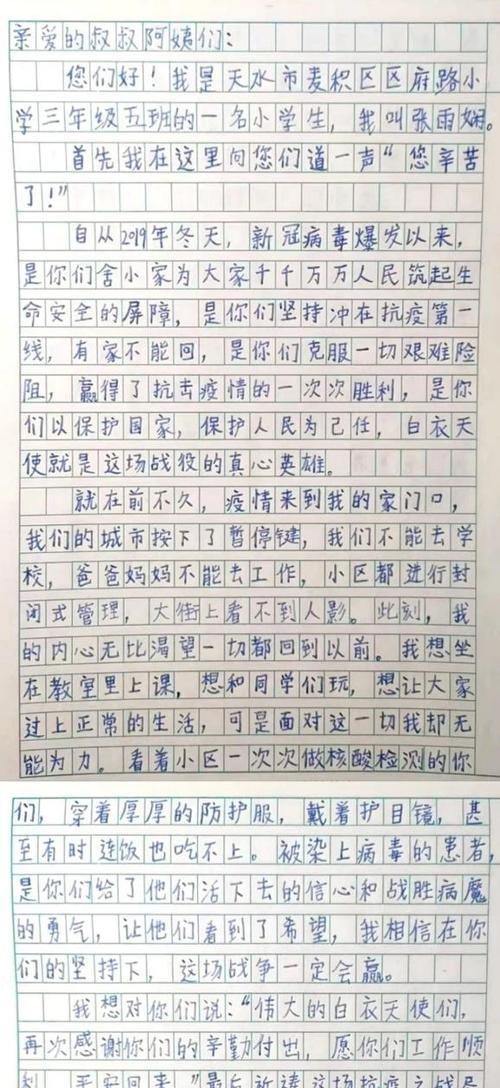 亲爱的叔叔阿姨们：
您们好！我是天水市麦积区区府路小
学三年级五班的一名小学生，我叫张雨娴。
首先我在这里向您们道一声“您辛苦
了！”
自从2019年冬天，新冠病毒爆发以来，
是你们舍小家为大家千千万万人民筑起生
命安全的屏障，是你们坚持冲在抗疫第一
线，有家不能回，是你们克服一切艰难险
阻，赢得了抗击疫情的一次次胜利，是你
们以保护国家，保护人民为己任，白衣天
使就是这场战役的真心英雄。
就在前不久，疫情来到我的家门口，
我们的城市按下了暂停键，我们不能去学
校，爸爸妈妈不能去工作，小区都进行封
闭式管理，大街上看不到人影。此刻，我
的内心无比渴望一切都回到以前。我想坐
在教室里上课，想和同学们玩，想让大家
过上正常的生活，可是面对这一切我却无
能为力。看着小区一次次做核酸检测的你
们，穿着厚厚的防护服，戴着护目镜，甚
至有时连饭也吃不上。被染上病毒的患者，
是你们给了他们活下去的信心和战胜病魔
的勇气，让他们看到了希望，我相信在你
们的坚持下，这场战争一定会赢。
我想对你们说：“伟大的白衣天使们，
再次感谢你们的辛勤付出，愿你们工作顺
利，平安回来”最后祈祷这场抗疫之战尽